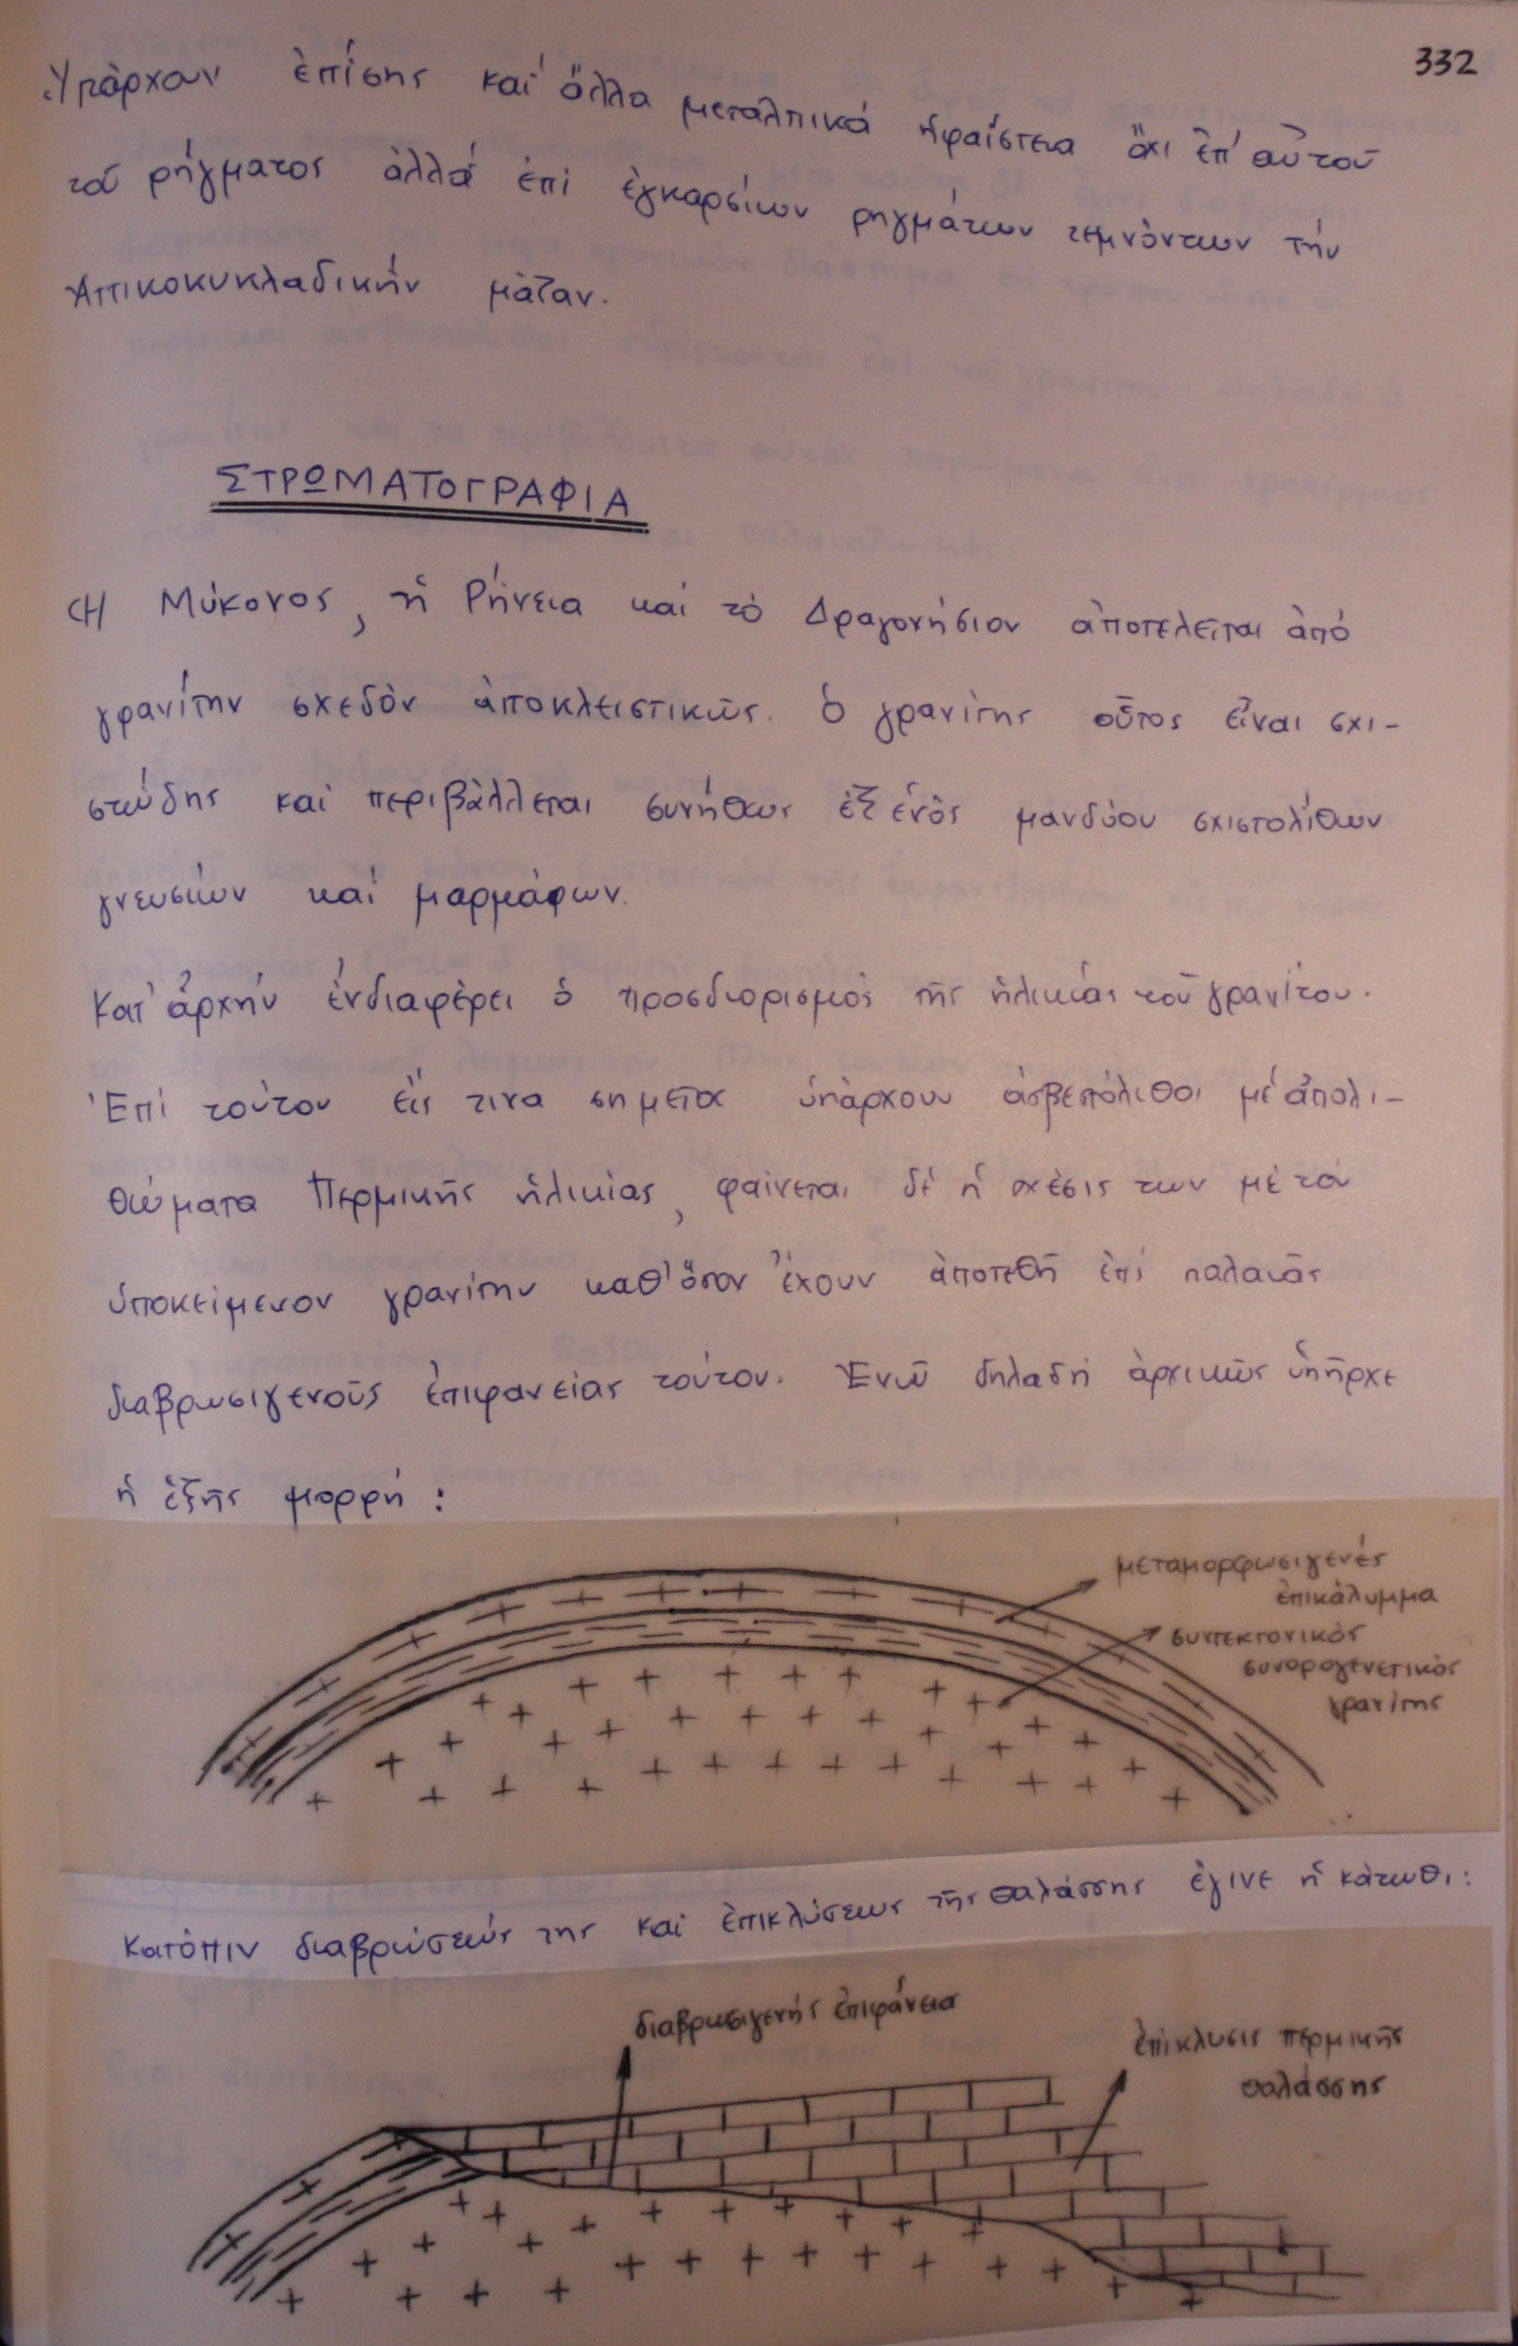 332
Ὑπάρχουν ἐπίσης καί ἄλλα μεταλπικά ἡφαίστεια ὄχι ἐπ' αὐτοῦ
τοῦ ρήγματος ἀλλά ἐπί ἐγκαρσίων ρηγμάτων τεμνόντων τήν
Ἀττικοκυκλαδικήν μᾶζαν.
ΣΤΡΩΜΑΤΟΓΡΑΦΙΑ
Ἡ Μύκονος, ἡ Ρήνεια καί τό Δραγονήσιον ἀποτελεῖται ἀπό
γρανίτην σχεδόν ἀποκλειστικῶς. Ὁ γρανίτης οὗτος εἶναι σχι-
στώδης καί περιβάλλεται συνήθως ἐξ ἑνός μανδύου σχιστολίθων
γνευσίων καί μαρμάρων.
Κατ' ἀρχήν ἐνδιαφέρει ὁ προσδιορισμός τῆς ἡλικίας τοῦ γρανίτου.
Ἐπί τούτου εἴς τινα σημεῖα ὑπάρχουν ἀσβεστόλιθοι μέ ἀπολι-
θώματα Περμικῆς ἡλικίας, φαίνεται δέ ἡ σχέσις των μέ τόν
ὑποκείμενον γρανίτην καθ' ὅσον ἔχουν ἀποτεθῆ ἐπί παλαιᾶς
διαβρωσιγενοῦς ἐπιφανείας τούτου. Ἐνῶ δηλαδή ἀρχικῶς ὑπῆρχε
ἡ ἑξῆς μορφή :
μεταμορφωσιγενές
ἐπικάλυμμα
συντεκτονικός
συνορογενετικός
γρανίτης
Κατόπιν διαβρώσεώς της καί ἐπικλύσεως τῆς θαλάσσης ἔγινε ἡ κάτωθι :
διαβρωσιγενής ἐπιφάνεια
ἐπίκλυσις περμικῆς
θαλάσσης